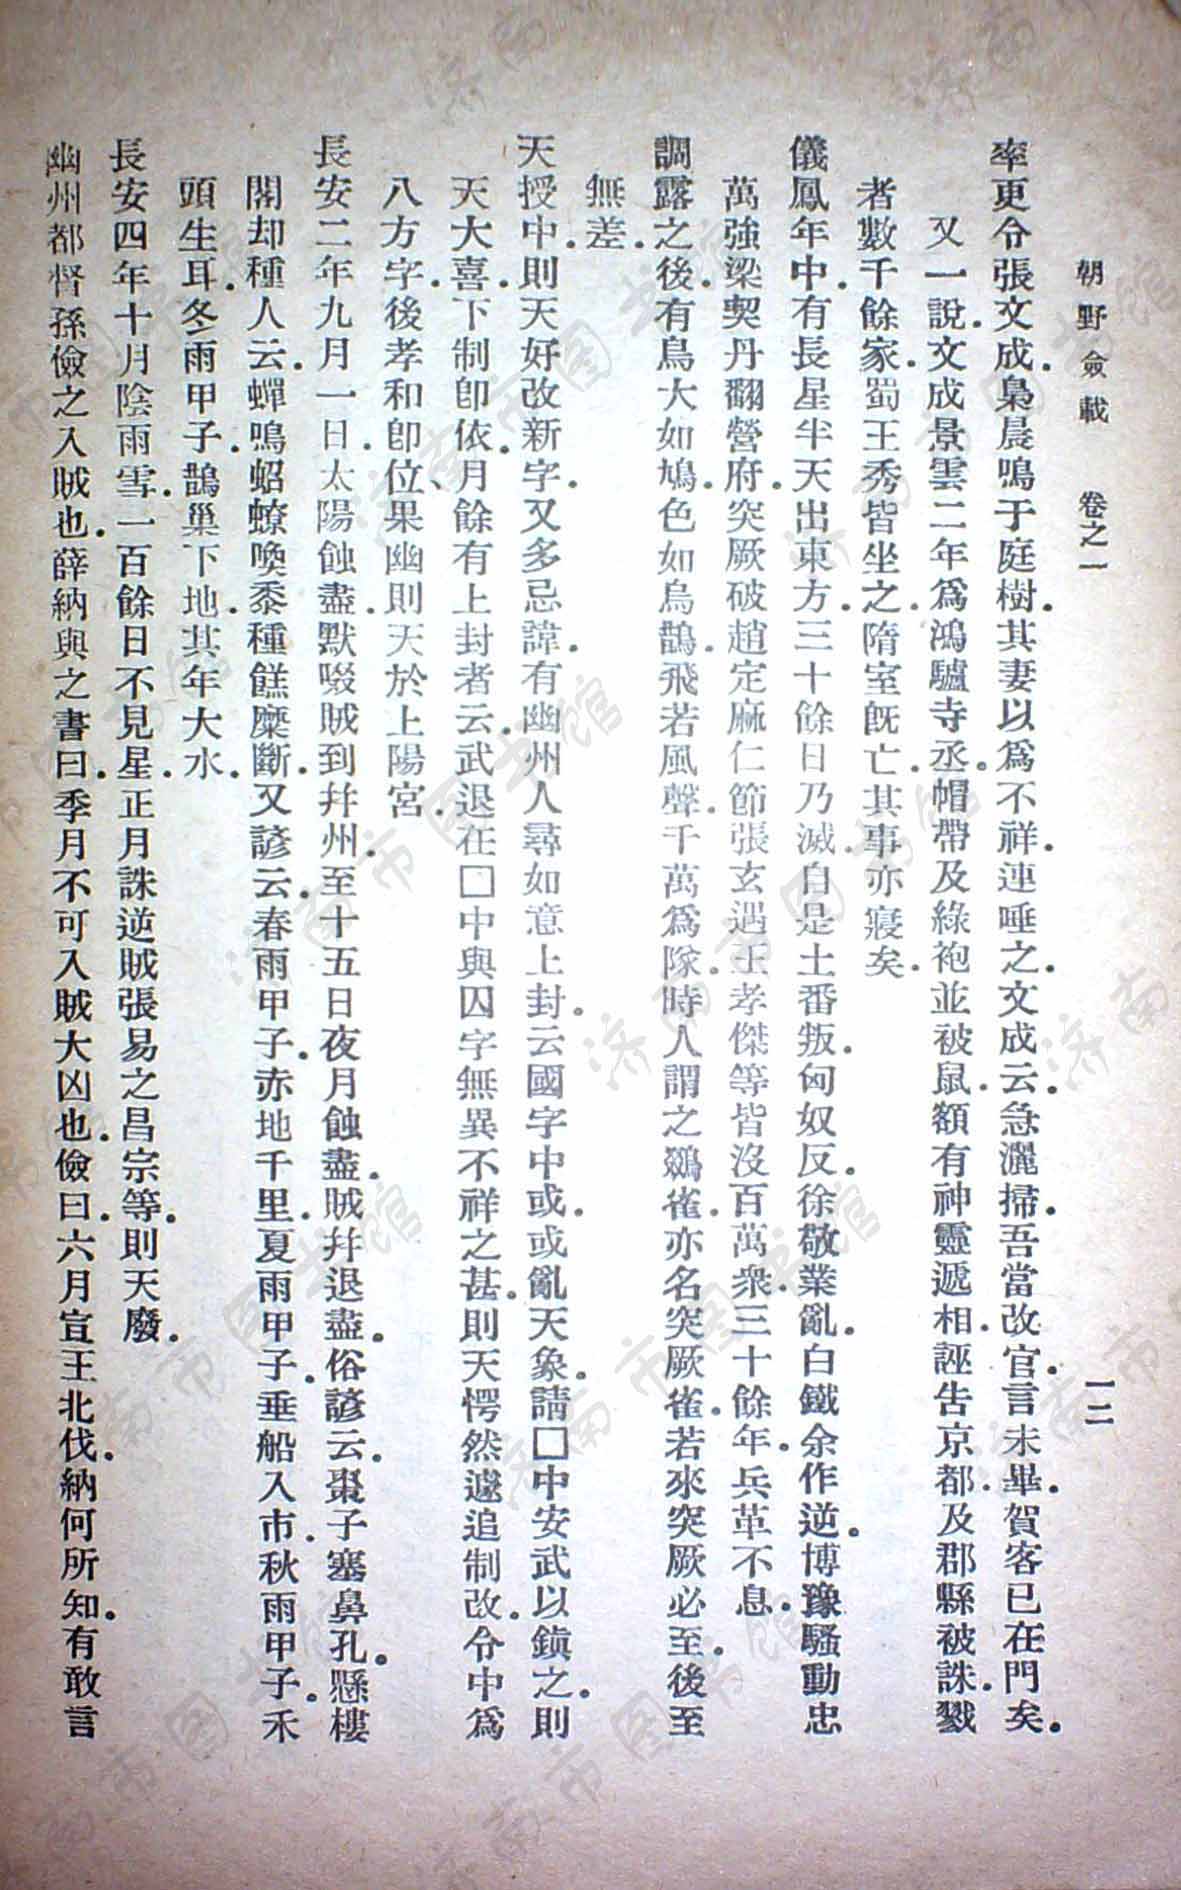 朝野僉載　卷之一　一二
率更令張文成。梟晨鳴于庭樹。其妻以爲不祥。連唾之。文成云。急灑掃。吾當改官。言未畢。賀客已在門矣。
又一說。文成景雲二年爲鴻驢寺丞。帽帶及綠袍並被鼠額有神靈遞相誣告京都。及郡縣被誅戮
者數千餘家。蜀王秀皆坐之。隋室旣亡。其事亦寢矣。
儀鳳年中。有長星半天出東方。三十餘日乃滅。自是土番叛。匈奴反。徐敬業亂。白鐵余作逆。博豫騷動忠
萬強梁契丹翻營府。突厥破趙定麻仁節張玄遇王孝傑等皆沒百萬衆。三十餘年。兵革不息。
調露之後。有鳥大如鳩。色如烏鵲。飛若風聲。千萬爲隊。時人謂之鵽雀。亦名突厥雀。若來突厥必至。後至
無差。
天授中。則天好改新字。又多忌諱。有幽州人尋如意上封。云國字中或。或亂天象。請□中安武以鎮之。則
天大喜。下制卽依。月餘有上封者云。武退在□中與囚字無異不祥之甚。則天愕然遽追制改。令中爲
八方字。後孝和卽位、果幽則天於上陽宮。
長安二年九月一日。太陽蝕盡。默啜賊到幷州。至十五日夜月蝕盡。賊幷退盡。俗諺云。棗子塞鼻孔。懸樓
閣却種人云。蟬鳴蛁蟟喚黍種餻糜斷。又諺云。春雨甲子。赤地千里。夏雨甲子。垂船入市。秋雨甲子。禾
頭生耳。冬雨甲子。鵲巢下地。其年大水。
長安四年十月陰雨雪。一百餘日不見星。正月誅逆賊張易之昌宗等。則天廢。
幽州都督孫儉之入賊也。薛納與之書曰。季月不可入賊大凶也。儉曰。六月宣王北伐。納何所知。有敢言
济南市图书馆